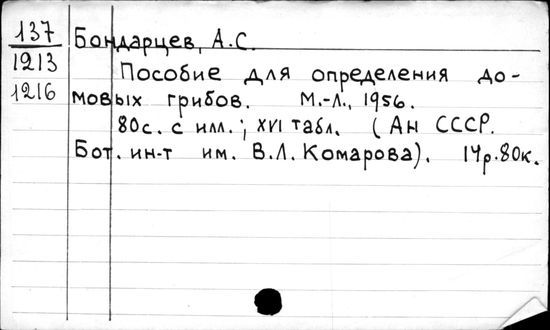 137 Бондарцев, А.С.
1213 Пособие для определения до-
1216 мовых грибов. М.-Л., 1956.
80с. с илл.; XVI табл. (Ан СССР.
Бот. ин-т им. В.Л. Комарова). 14р.80к.